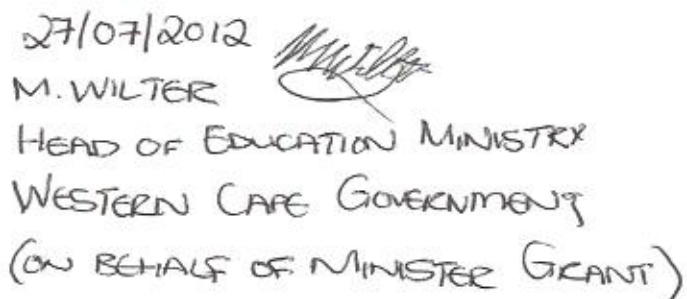 27/07/2012
M. WILTER
HEAD OF EDUCATION MINISTRY
WESTERN CAPE GOVERNMENT
(ON BEHALF OF MINISTER GRANT)